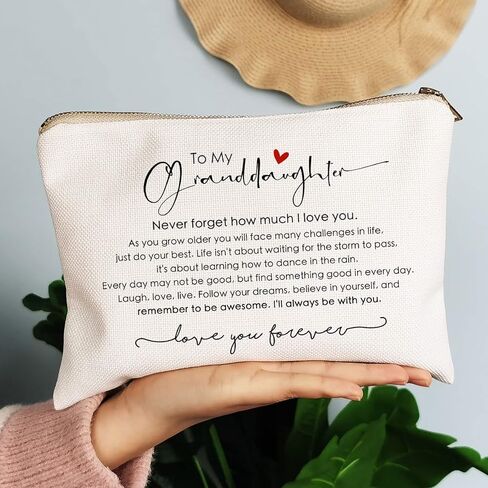 To My
Granddaughter
Never forget how much I love you.
As you grow older you will face many challenges in life,
just do your best. Life isn't about waiting for the storm to pass,
it's about learning how to dance in the rain.
Every day may not be good, but find something good in every day.
Laugh, love, live. Follow your dreams, believe in yourself, and
remember to be awesome. I'll always be with you.
love you forever